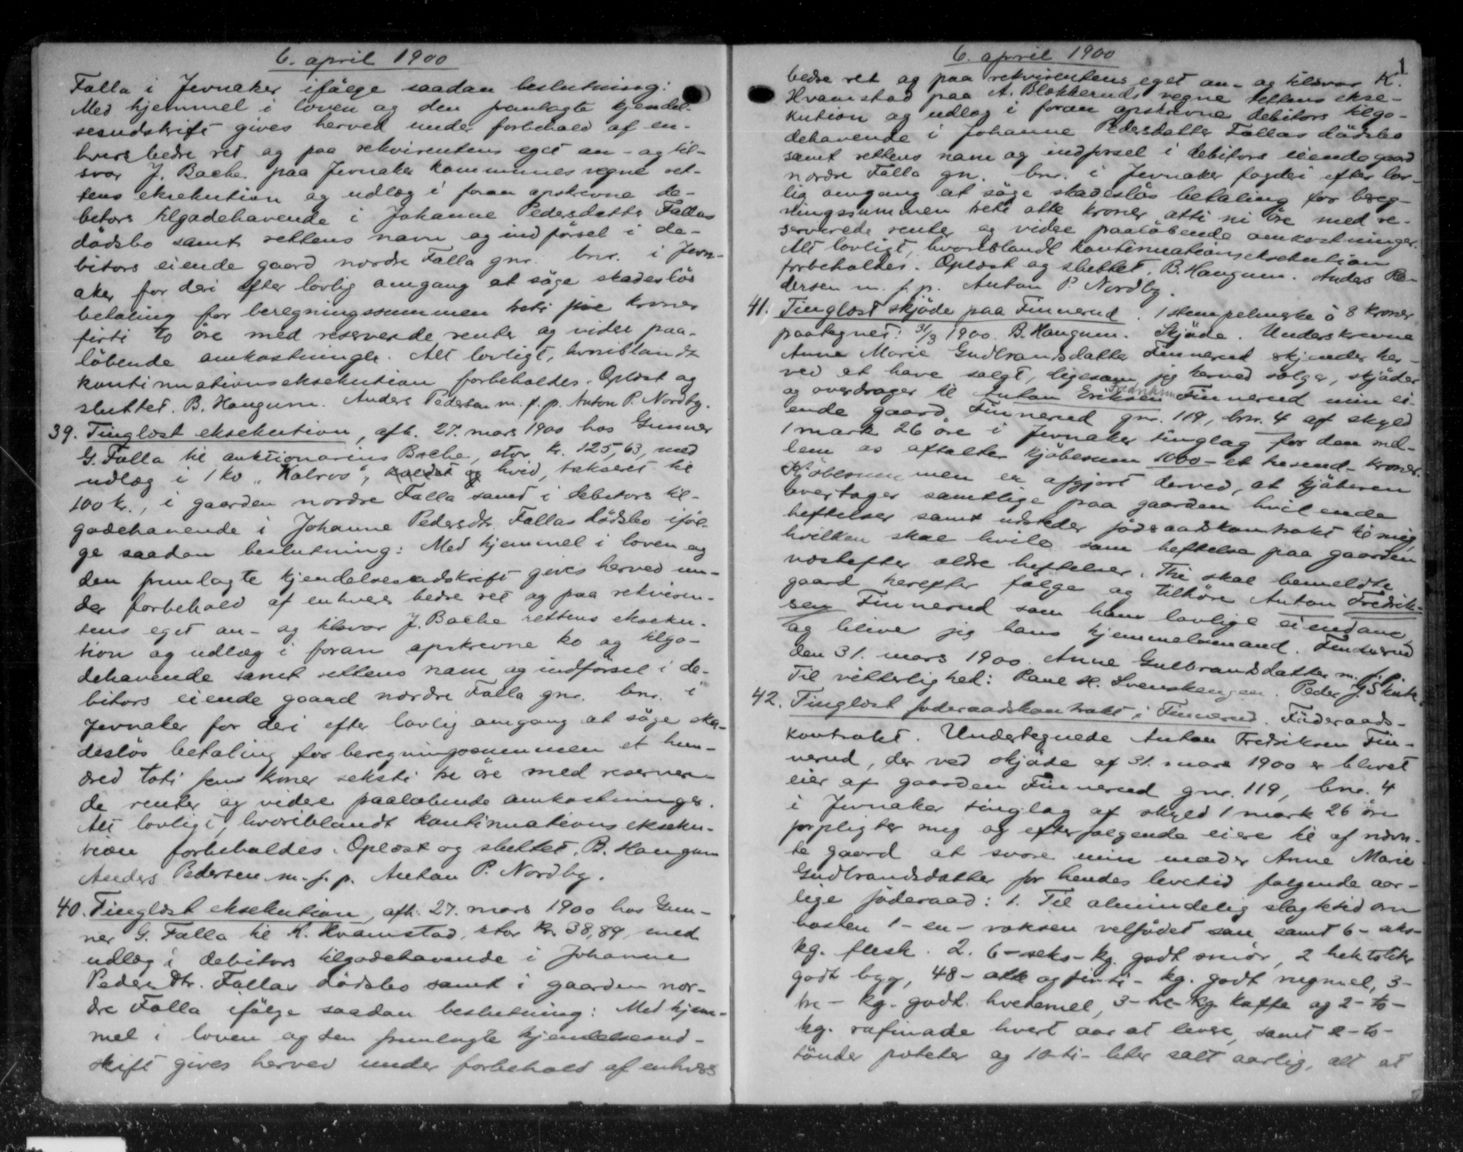 6. april 1900
Falla i Jevnaker ifølge saadan beslutning:
Med hjemmel i loven og den fremlagte kjendel-
sesudskrift gives herved under forbehold af en-
hvers bedre ret og paa rekvirentens eget an- og til-
svar J. Bache paa Jevnaker kommunes vegne ret-
tens eksekution og udlæg i foran anskrevne de-
bitors tilgodehavende i Johanne Pedersdatter Fallas
dødsbo samt rettens navn og indførsel i de-
bitors eiende gaard nordre Falla gnr. bnr. i Jevn-
aker for deri efter lovlig omgang at søge skadesløs
betaling for beregningssummen kroner
firti to øre med reserverede renter og videre paa-
løbende omkostninger. Alt lovligt, hvoriblandt
kontinuationseksekution forbeholdes. Oplæst og
sluttet. B. Haugum. Anders Pedersen m. f. p. Anton P. Nordby.
39. Tinglæst eksekution, afh. 27. mars 1900 hos Gunner
G. Falla til auktionarius Bache, stor kr. 125,63, med
udlæg i 1 ko "Kalros", og hvid, takseret til
100 kr., i gaarden nordre Falla samt i debitors til-
godehavende i Johanne Pedersdtr. Fallas dødsbo iføl-
ge saadan beslutning: Med hjemmel i loven og
den fremlagte kjendelsesudskrift gives herved un-
der forbehold af enhvers bedre ret og paa rekviren-
tens eget an- og tilsvar J. Bache rettens ekseku-
tion og udlæg i foran anskrevne ko og tilgo-
dehavende samt rettens navn og indførsel i de-
bitors eiende gaard nordre Falla gnr. bnr. i
Jevnaker for deri efter lovlig omgang at søge ska-
desløs betaling for beregningssummen et hun-
dred toti fem kroner seksti tre øre med reservere-
de renter og videre paaløbende omkostninger.
Alt lovligt, hvoriblandt kontinuations ekseku-
tion forbeholdes. Oplæst og sluttet. B. Haugum
Anders Pedersen m. f. p. Anton P. Nordby.
40. Tinglæst eksekution, afh. 27. mars 1900 hos Gun-
ner G. Falla til K. Hvamstad, stor kr. 38,89, med
udlæg i debitors tilgodehavende i Johanne
Pedersdtr. Fallas dødsbo samt i gaarden nor-
dre Falla ifølge saadan beslutning: Med hjem-
mel i loven og den fremlagte kjendelsesud-
skrift gives herved under forbehold af enhvers
6. april 1900
1
bedre ret og paa rekvirentens eget an- og tilsvar K.
Hvamstad paa A. Blokkerud vegne rettens ekse-
kution og udlæg i foran anskrevne debitors tilgo-
dehavende i Johanne Pedersdatter Fallas dødsbo
samt rettens navn og indførsel i debitors eiende gaard
nordre Falla gn. bnr. i Jevnaker fordi efter lov-
lig omgang at søge skadesløs betaling for bereg-
ningssummen treti otte kroner otti ni øre med re-
serverede renter og videre paaløbende omkostninger.
Alt lovligt, hvoriblandt kontinuationseksekution
forbeholdes. Oplæst og sluttet. B. Haugum. Anders Pe-
dersen m. f. p. Anton P. Nordby.
41. Tinglæst skjøde paa Finnerud. 1 stempelmerke à 8 kroner
paategnet: 31/3 1900. B. Haugum. Skjøde. Underskrevne
Anne Marie Gudbrandsdatter Finnerud skjender her-
ved at have solgt, ligesom jeg herved sælger, skjøder
og overdrager til Anton Eriksen Fredriksen Finnerud min ei-
ende gaard Finnerud gn. 119, brn. 4 af skyld
1 mark 26 øre i Jevnaker tinglag for den mel-
lem os aftalte kjøbesum 1000- et tusend- kroner.
Kjøbesummen er afgjort derved, at kjøberen
overtager samtlige paa gaarden hvilende
heftelser samt udsteder føderaadskontrakt til mig,
hvilken skal hvile som heftelse paa gaarden
næstefter ældre heftelser. Thi skal bemeldte
gaard herefter følge og tilhøre Anton Fredrik-
sen Finnerud som hans lovlige eiendom,
og bliver jeg hans hjemmelsmand. Finnerud
den 31. mars 1900. Anne Gulbrandsdatter m. f. p.
Til vitterlighed: Peder
42. Tinglæst føderaadskontrakt i Finnerud. Føderaads-
kontrakt. Undertegnede Anton Fredriksen Fin-
nerud, der ved skjøde af 31. mars 1900 er blevet
eier af gaarden Finnerud gnr. 119, bnr. 4
i Jevnaker tinglag af skyld 1 mark 26 øre
forpligter mig og efterfølgende eiere til af nævn-
te gaard at svare min moder Anne Marie
Gudbrandsdatter for hendes levetid følgende aar-
lige føderaad: 1. Til almindelig slagtetid om
høsten 1- en- voksen velfødet sau samt 6- seks-
kg. flesk. 2. 6- seks- kg. godt smør, 2 hektoliter
godt byg, 48- otte og firti- kg. godt rugmel, 3-
tre- kg. godt hvedemel, 3- tre- kg kaffe og 2- to-
kg. rafinade hvert aar at levere, samt 2- to-
tønder poteter og 10 ti- liter salt aarlig, alt at